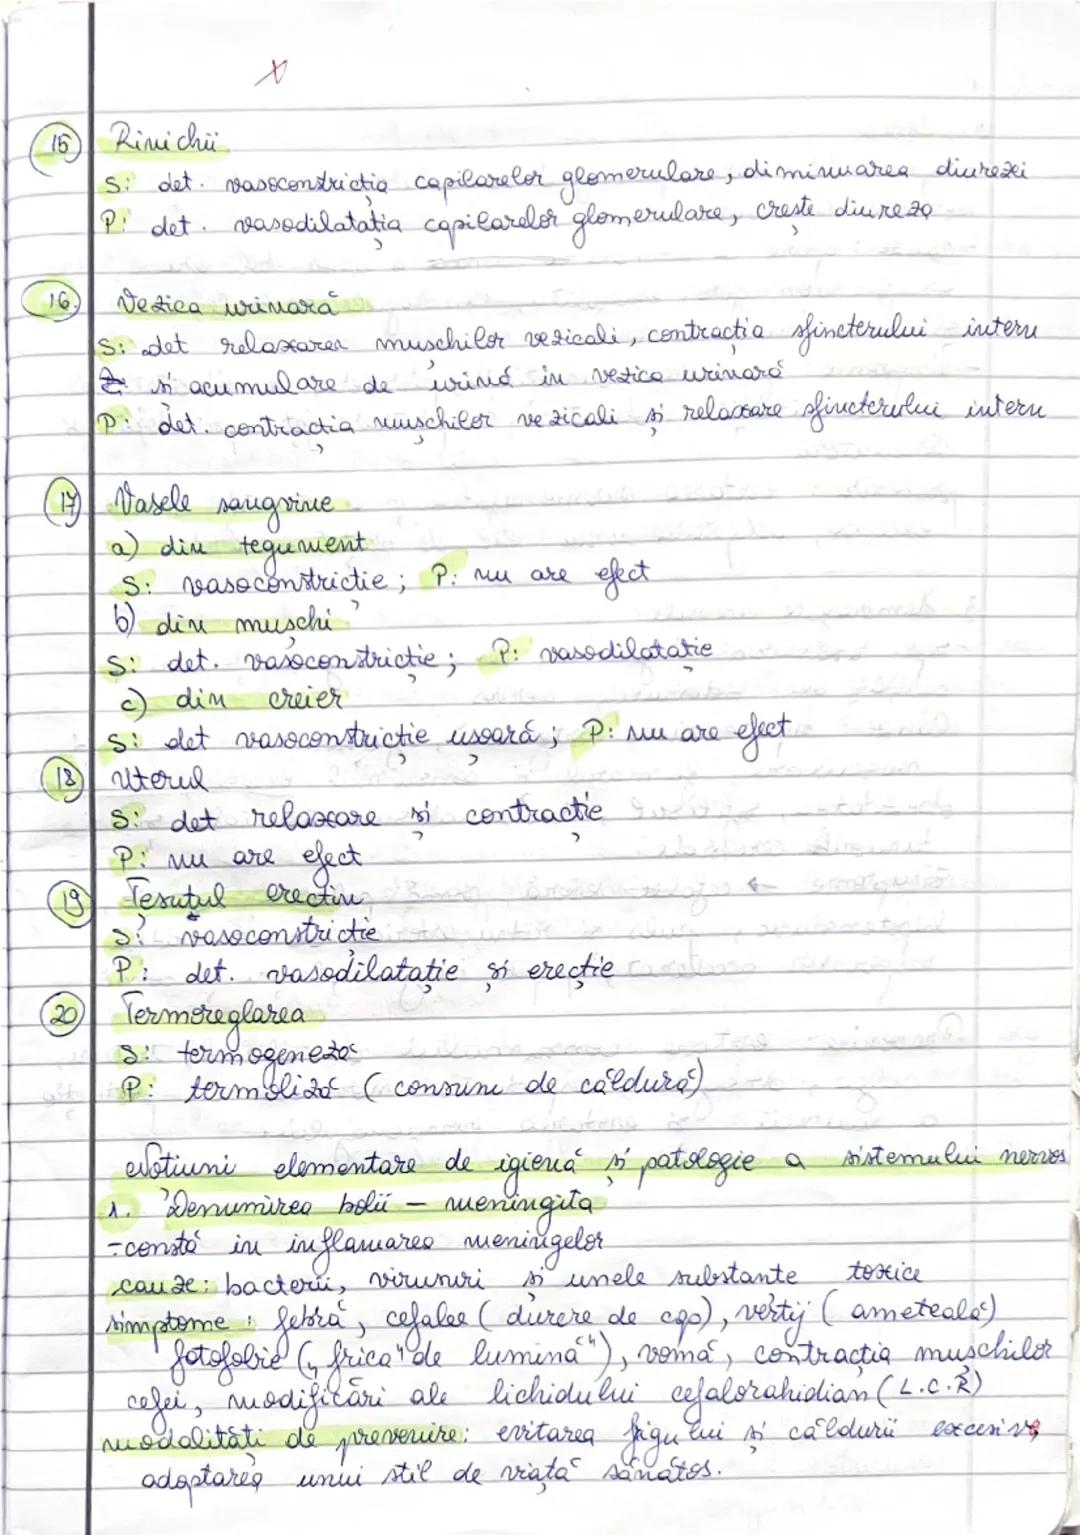 15 Rinichii
S: det. vasoconstricția capilarelor glomerulare, diminuarea diurezei
P: det. vasodilatația capilarelor glomerulare, crește diureza
16. Vezica urinară
S: det relaxarea mușchilor vezicali, contracția sfincterului intern
și acumulare de urină în vezica urinară
P: det. contracția mușchilor vezicali și relaxare sfincterului intern
17 Vasele sangvine
a) din tegument
S: vasoconstricție; P: nu are efect
b) din mușchi
S: det. vasoconstricție; P: vasodilatație
c) din creier
S: det vasoconstricție ușoară; P: nu are efect
18 Uterul
S: det relaxare și contracție
P: nu are efect
19 Țesutul erectiv
S: vasoconstricție
P: det. vasodilatație și erecție
20 Termoreglarea
S: termogeneză
P: termoliză (consum de căldură)
Noțiuni elementare de igienă și patologie a sistemului nervos
1. Denumirea bolii – meningita
- constă în inflamarea meningelor
cauze: bacterii, virusuri și unele substanțe toxice
simptome: febră, cefalee (durere de cap), vertij (amețeală)
fotofobie („frică" de lumină"), vomă, contracția mușchilor
cefei, modificări ale lichidului cefalorahidian (L.C.R)
modalități de prevenire: evitarea frigului și căldurii excesive
adoptarea unui stil de viață sănătos.